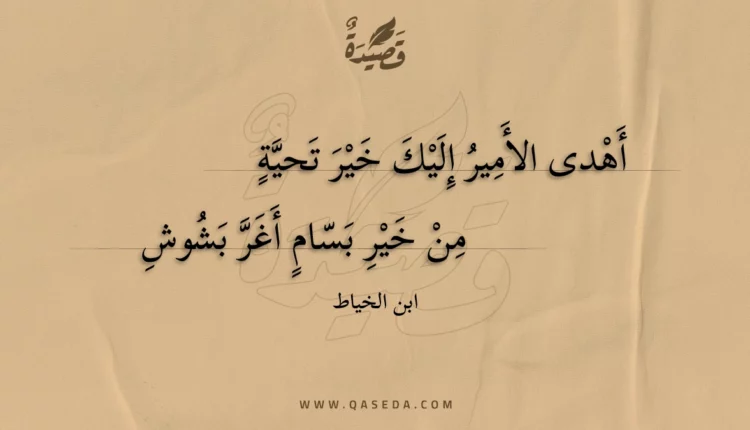 قَصِيدَةٌ
أَهْدى الأَمِيرُ إِلَيْكَ خَيْرَ تَحيَّةٍ
مِنْ خَيْرِ بَسّامٍ أَغَرَّ بَشُوشِ
ابن الخياط
WWW.QASEDA.COM